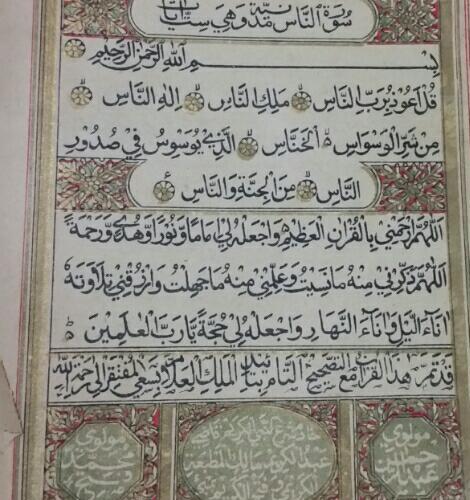 سورة الناس مدنية وهي ست آيات
بسم الله الرحمن الرحيم
قُلْ أَعُوذُ بِرَبِّ النَّاسِ مَلِكِ النَّاسِ إِلَهِ النَّاسِ
مِنْ شَرِّ الْوَسْوَاسِ الْخَنَّاسِ الَّذِي يُوَسْوِسُ فِي صُدُورِ
النَّاسِ مِنَ الْجِنَّةِ وَالنَّاسِ
اَللّٰهُمَّ ارْحَمْنِي بِالْقُرْاٰنِ الْعَظِيْمِ وَاجْعَلْهُ لِي اِمَامًا وَّنُوْرًا وَّهُدًى وَّرَحْمَةً
اَللّٰهُمَّ ذَكِّرْنِي مِنْهُ مَا نَسِيْتُ وَعَلِّمْنِي مِنْهُ مَا جَهِلْتُ وَارْزُقْنِي تِلَاوَتَهُ
اٰنَاءَ الَّيْلِ وَاٰنَاءَ النَّهَارِ وَاجْعَلْهُ لِي حُجَّةً يَّا رَبَّ الْعٰلَمِيْنَ
قد تم هذا القرآن مع التصحيح التام بتائيد الملك العلام بسعي المفتقر الى رحمة الله
مولوي
مولوي محمد